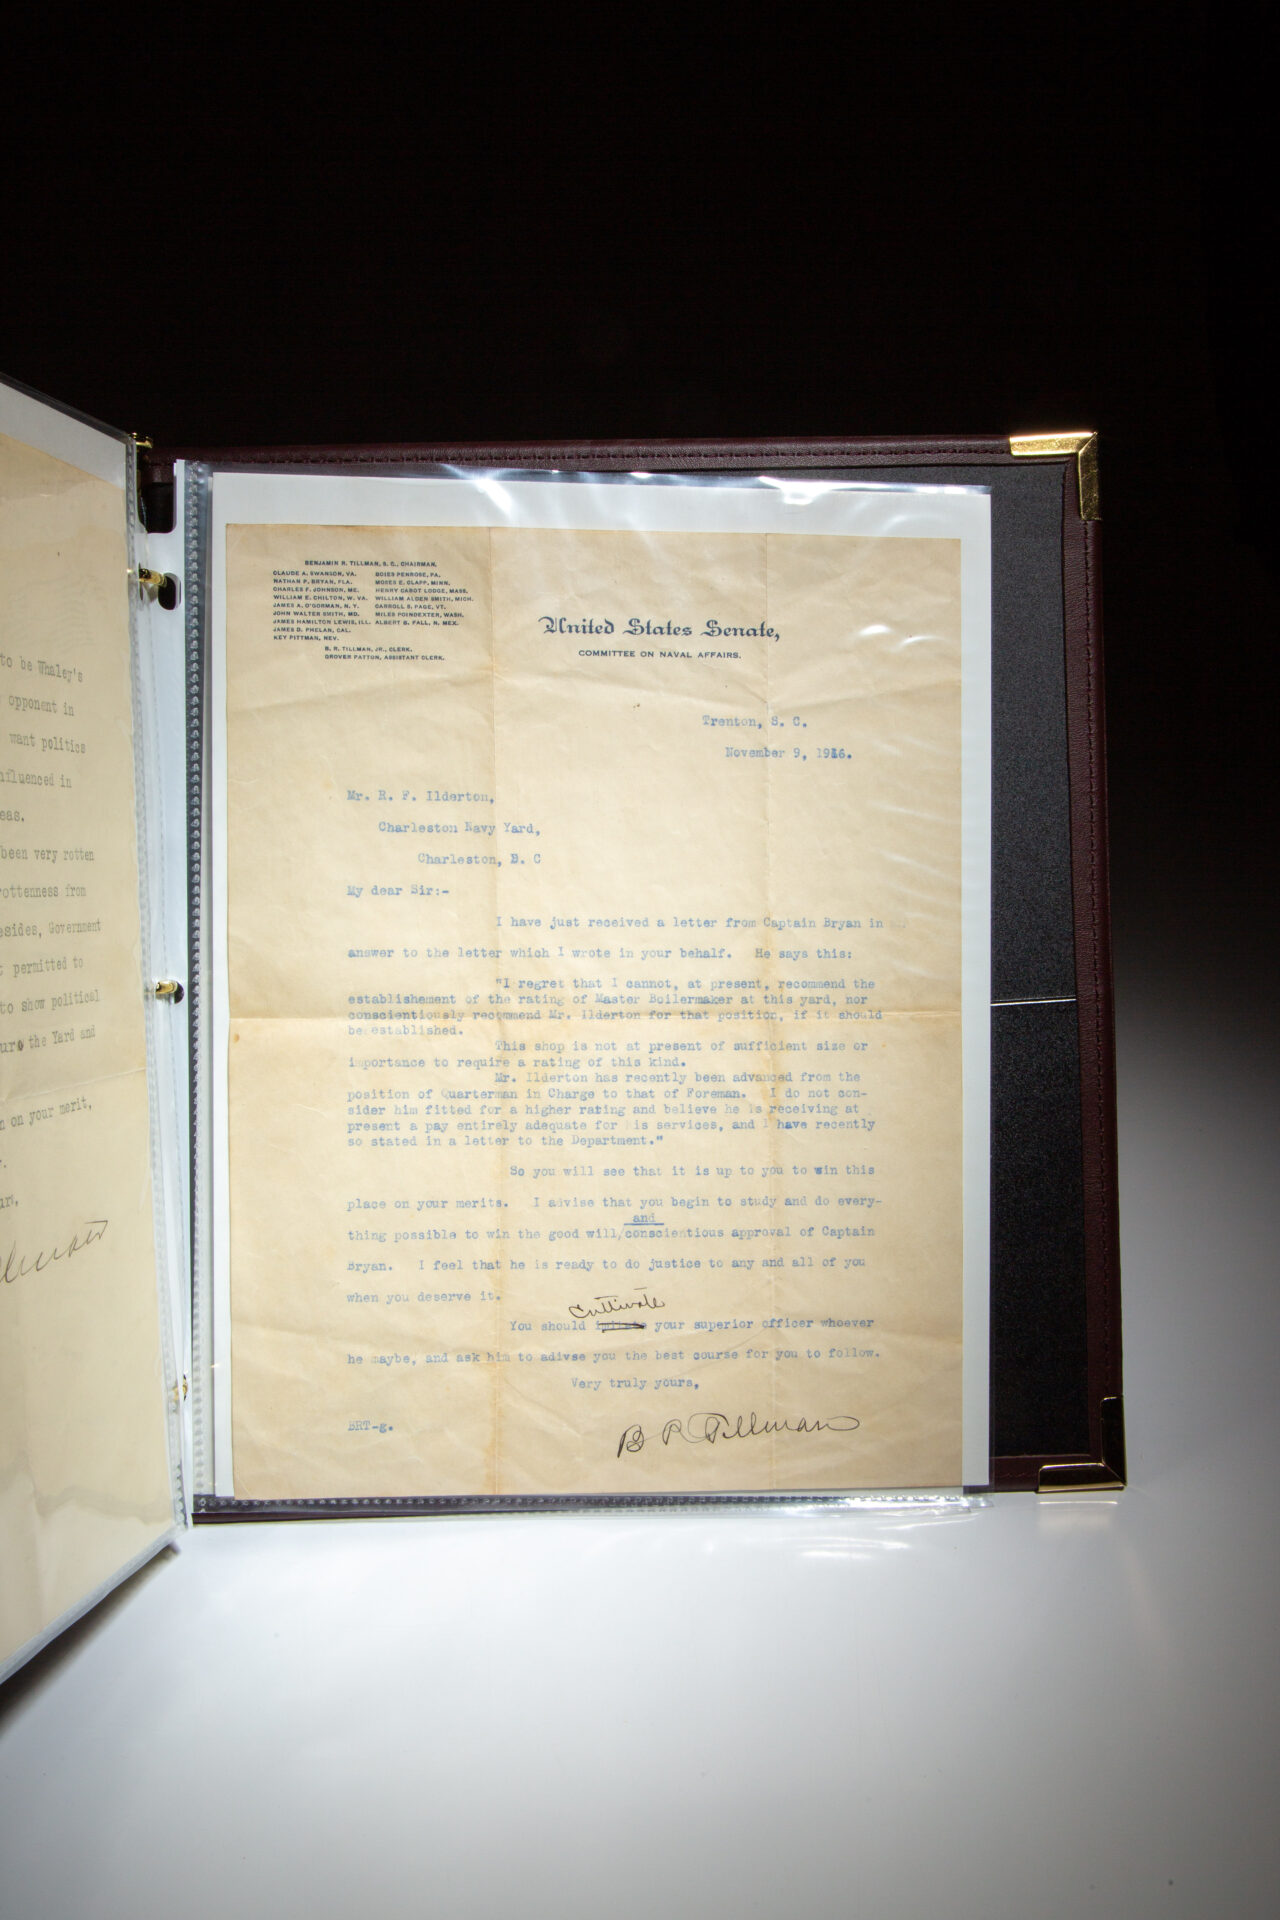 to be Whaley's
opponent in
want politics
nfluenced in
eas.
been very rotten
ottenness from
esides, Government
permitted to
to show political
the Yard and
on your merit,
BENJAMIN R. TILLMAN, S. C., CHAIRMAN.
CLAUDE A. SWANSON, VA. BOIES PENROSE, PA.
NATHAN P. BRYAN, FLA. MOSES E. CLAPP, MINN.
CHARLES F. JOHNSON, ME. HENRY CABOT LODGE, MASS.
WILLIAM E. CHILTON, W. VA. WILLIAM ALDEN SMITH, MICH.
JAMES A. O'GORMAN, N. Y. CARROLL S. PAGE, VT.
JOHN WALTER SMITH, MD. MILES POINDEXTER, WASH.
JAMES HAMILTON LEWIS, ILL. ALBERT B. FALL, N. MEX.
JAMES D. PHELAN, CAL.
KEY PITTMAN, NEV.
B. R. TILLMAN, JR., CLERK.
GROVER PATTUN, ASSISTANT CLERK.
United States Senate,
COMMITTEE ON NAVAL AFFAIRS.
Trenton, S. C.
November 9, 1916.
Mr. R. F. Ilderton,
Charleston Navy Yard,
Charleston, C
My dear Sir:-
I have just received a letter from Captain Bryan in
answer to the letter which I wrote in your behalf. He says this:
"I regret that I cannot, at present, recommend the
establishement of the rating of Master Boilermaker at this yard, nor
conscientiously recommend Mr. Ilderton for that position, if it should
be established.
This shop is not at present of sufficient size or
importance to require a rating of this kind.
Mr. Ilderton has recently been advanced from the
position of Quarterman in Charge to that of Foreman. I do not con-
sider him fitted for a higher rating and believe he is receiving at
present a pay entirely adequate for his services, and I have recently
so stated in a letter to the Department."
So you will see that it is up to you to win this
place on your merits. I advise that you begin to study and do every-
and
thing possible to win the good will/conscientious approval of Captain
Bryan. I feel that he is ready to do justice to any and all of you
when you deserve it.
Cultivate
You should your superior officer whoever
he maybe, and ask him to adivse you the best course for you to follow.
Very truly yours,
BRT-g.
B R Tillman